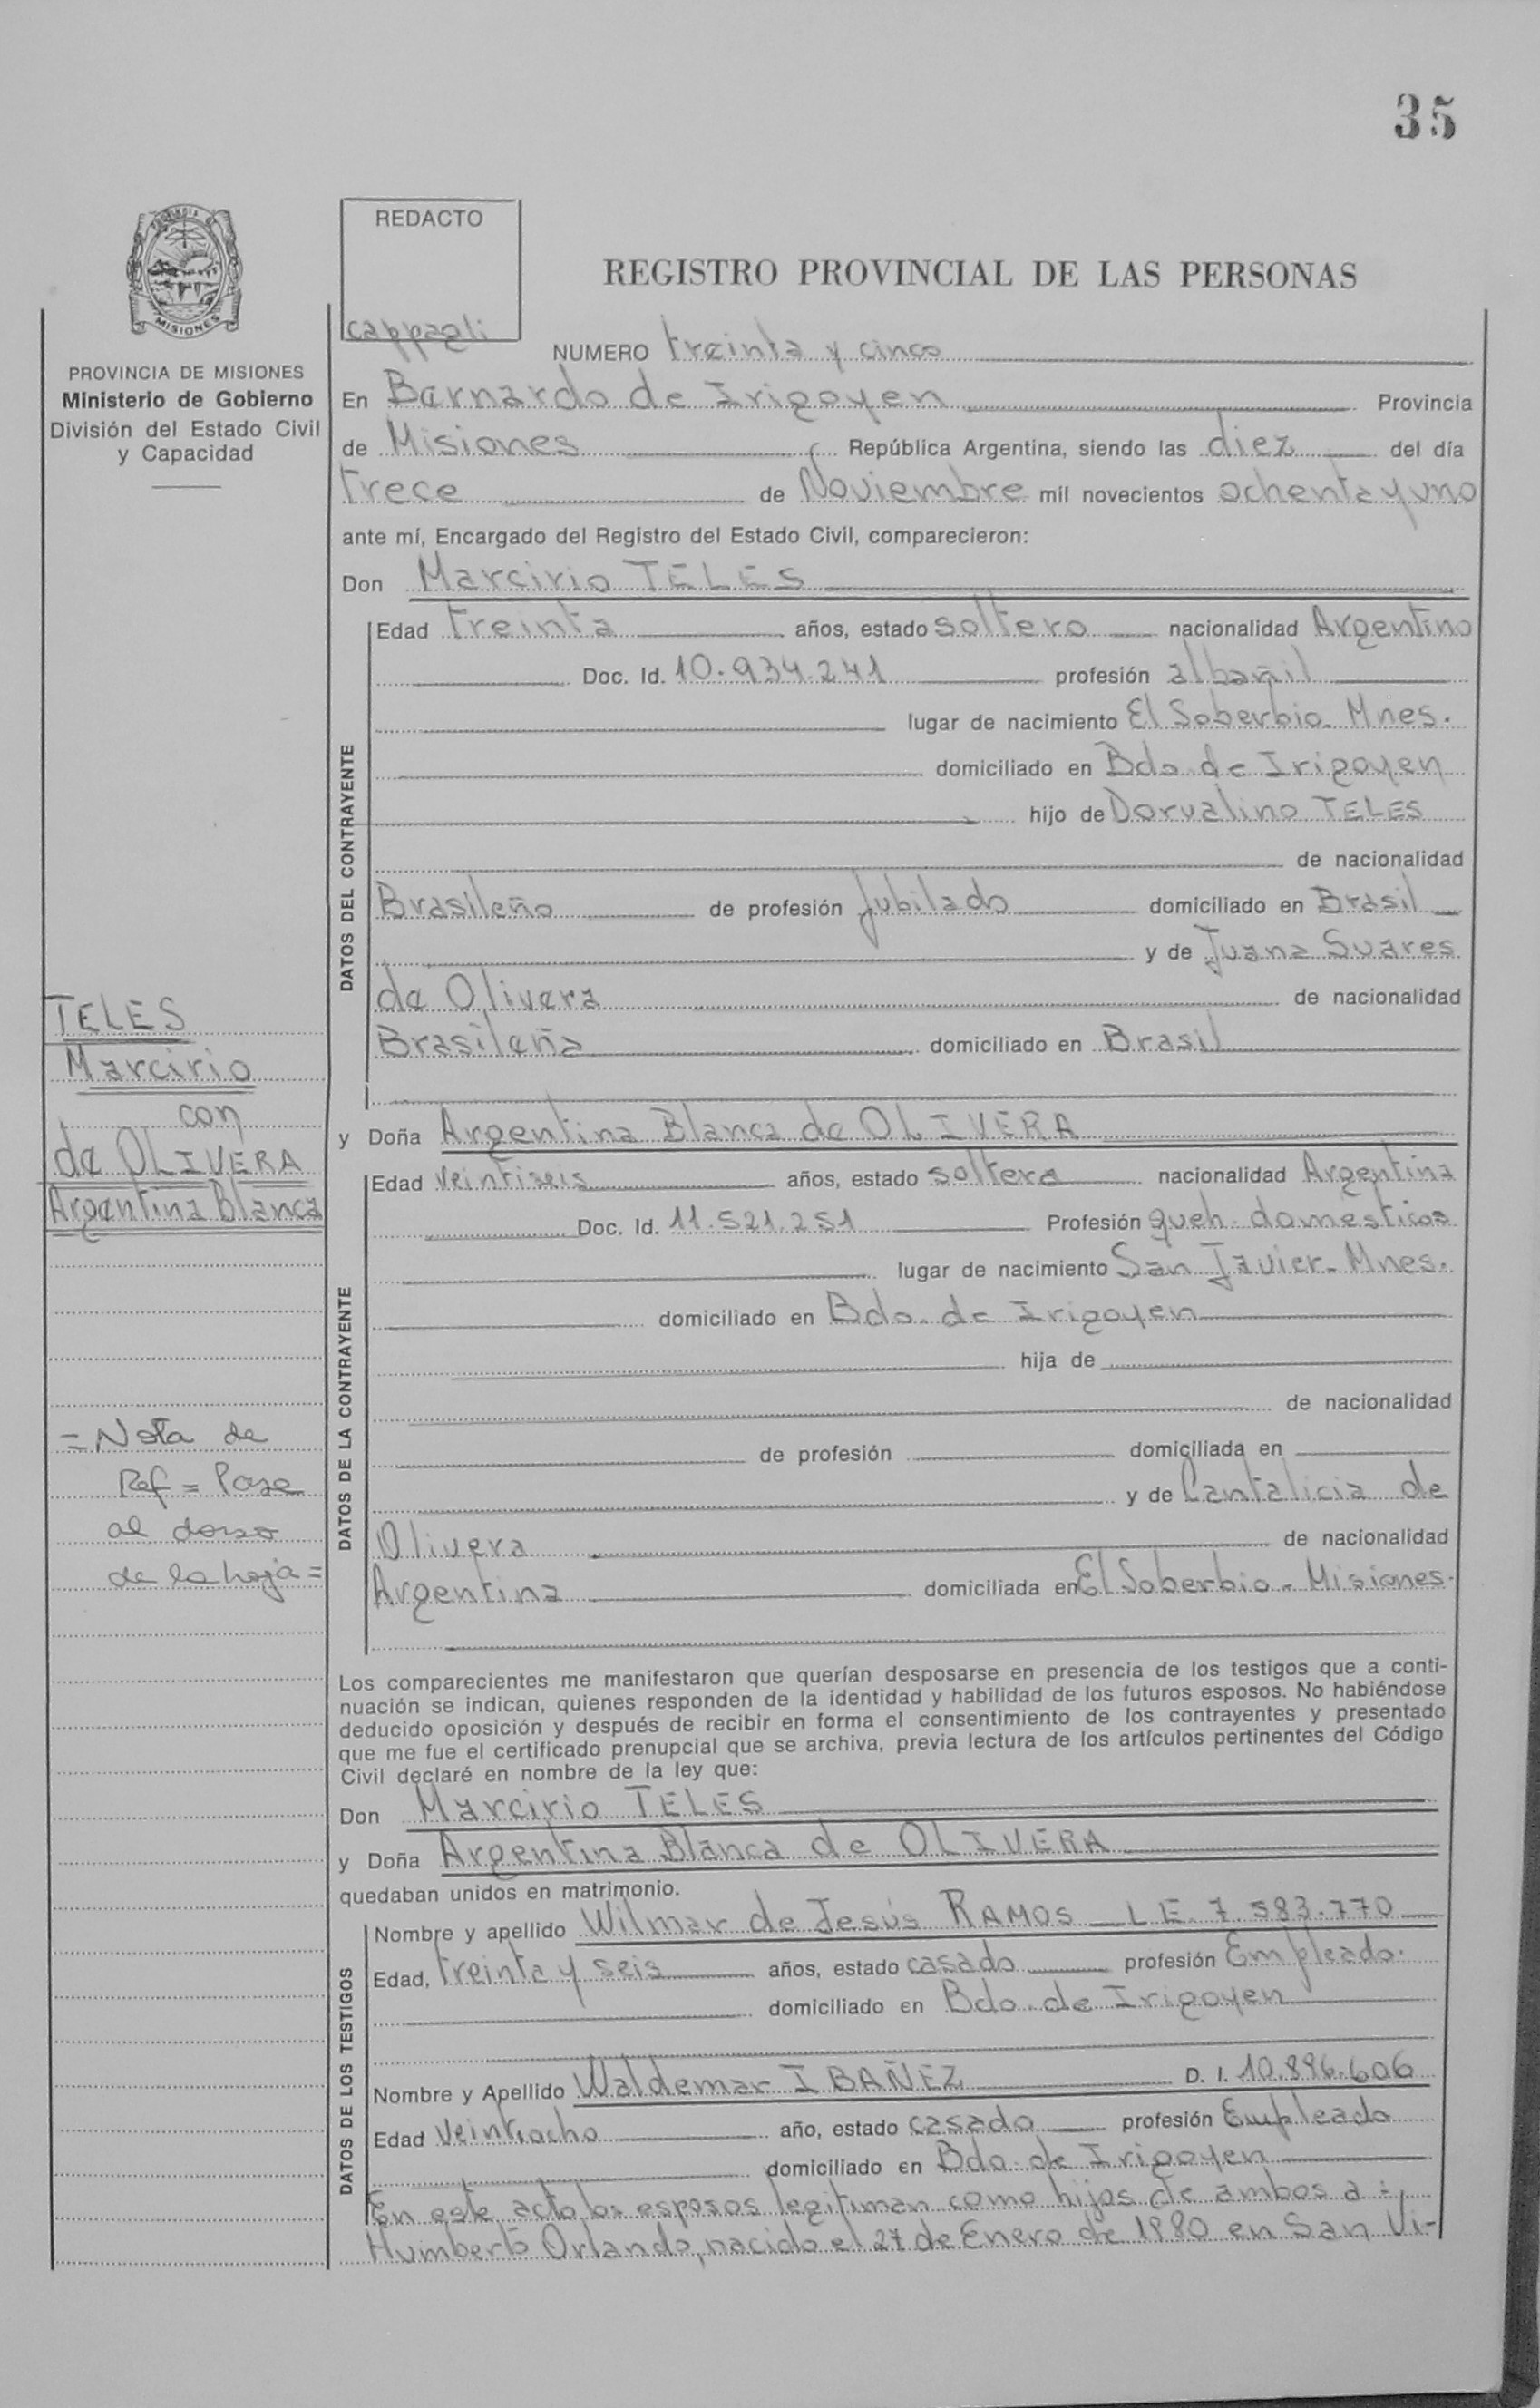 35
PROVINCIA DE
MISIONES
REDACTO
cappagli
REGISTRO PROVINCIAL DE LAS PERSONAS
PROVINCIA DE MISIONES
Ministerio de Gobierno
División del Estado Civil
y Capacidad
NUMERO treinta y cinco
En Bernardo de Irigoyen Provincia
de Misiones República Argentina, siendo las diez del día
trece de Noviembre mil novecientos ochenta y uno
ante mí, Encargado del Registro del Estado Civil, comparecieron:
Don Marcirio TELES
DATOS DEL CONTRAYENTE
Edad treinta años, estado soltero nacionalidad Argentino
Doc. Id. 10.934.241 profesión albañil
lugar de nacimiento El Soberbio - Mnes.
domiciliado en Bdo. de Irigoyen
hijo de Dorvalino TELES
de nacionalidad
Brasileño de profesión Jubilado domiciliado en Brasil
y de Juana Suares
de Olivera de nacionalidad
Brasileña domiciliado en Brasil
TELES
Marcirio
con
de OLIVERA
Argentina Blanca
y Doña Argentina Blanca de OLIVERA
DATOS DE LA CONTRAYENTE
Edad veintiseis años, estado soltera nacionalidad Argentina
Doc. Id. 11.521.251 Profesión queh. domesticos
lugar de nacimiento San Javier - Mnes.
domiciliado en Bdo. de Irigoyen
hija de
de nacionalidad
de profesión domiciliada en
y de Cantalicia de
Olivera de nacionalidad
Argentina domiciliada en El Soberbio - Misiones.
= Nota de
Ref = Pase
al dorso
de la hoja =
Los comparecientes me manifestaron que querían desposarse en presencia de los testigos que a conti-
nuación se indican, quienes responden de la identidad y habilidad de los futuros esposos. No habiéndose
deducido oposición y después de recibir en forma el consentimiento de los contrayentes y presentado
que me fue el certificado prenupcial que se archiva, previa lectura de los artículos pertinentes del Código
Civil declaré en nombre de la ley que:
Don Marcirio TELES
y Doña Argentina Blanca de OLIVERA
quedaban unidos en matrimonio.
DATOS DE LOS TESTIGOS
Nombre y apellido Wilmar de Jesús RAMOS - L.E. 7.583.770
Edad, treinta y seis años, estado casado profesión Empleado.
domiciliado en Bdo. de Irigoyen
Nombre y Apellido Waldemar IBAÑEZ D. I. 10.896.606
Edad veintiocho año, estado casado profesión Empleado
domiciliado en Bdo. de Irigoyen
En este acto los esposos legitiman como hijos de ambos a :
Humberto Orlando, nacido el 27 de Enero de 1980 en San Vi-